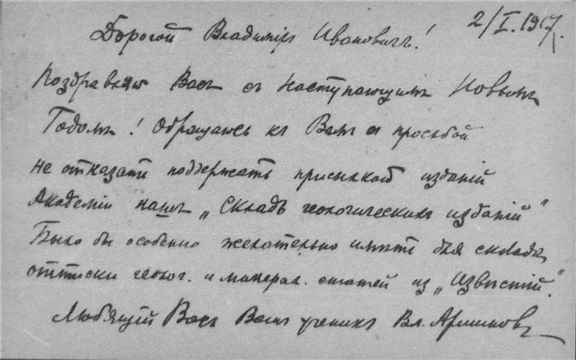 2/I. 1917.
Дорогой Владимiръ Ивановичъ!
Поздравляю Васъ съ наступающимъ Новымъ
Годомъ! Обращаюсь къ Вамъ съ просьбой
не отказать поддержать присылкой изданiй
Академiи нашъ „Складъ геологическихъ изданiй“
Было бы особенно желательно имѣть для склада
оттиски геолог. и минерал. статей из „Извѣстiй“.
Любящiй Васъ Вашъ ученикъ Вл. Аршиновъ